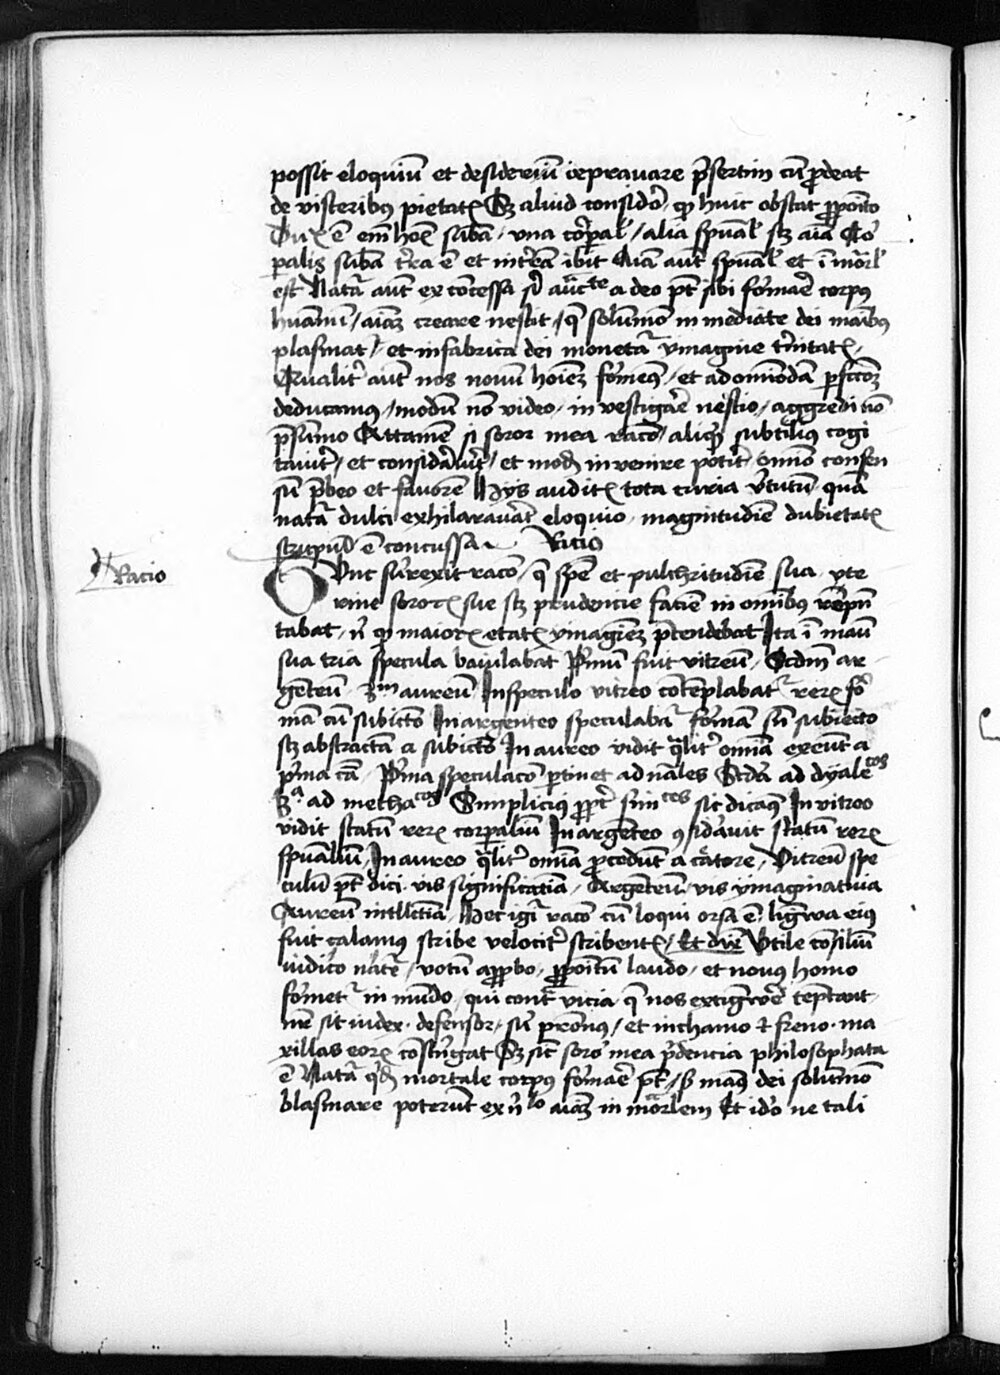 possit eloquiū et desideriū depravare p̄sertim cū p̄deat
de visceribꝰ pietatꝭ Sꝫ aliud considō ꝙ huic obstat p̄poīto
Dux ē em̄ hoīs sūba / una corꝑal / alia spūal scꝫ aīa Cor
ꝑalis sūba trr̄a ē et in trr̄a ibit Aīa aūt spūal et īmōrl
est Natᷓ aūt ex concessa s aūcte a deo pt sibi formaē corpꝰ
hūanū / aīaꝫ creare nescit / q̄ solūmō in mediate dei manibꝰ
plasmatᷣ / et in fabrica dei monetᷓ ymagine trinitatꝭ /
Qualitᷣ aūt nos novū hoīeꝫ formeꝰ / et ad omīodā ꝑfcōꝫ
deducamꝰ / modū nō video / in vestigaē nescio / aggredi nō
p̄sumo Attamē si soror mea racō / aliqͥd subtiliꝰ cogi
tavitᷣ / et consideravitᷣ / et modū invenire potitᷣ / omīo consen
sū p̄beo et favorē Hijs auditꝭ tota curia v̄tutū quā
natᷓ dulci exhilaraverat eloquio / magnitudīe dubietatꝭ
ē concussa Racio
Racio
Tunc surrexit racō / q̄ spē et pulchritudīe sua / ute
rine sororꝭ sue scꝫ prudencie faciē in omībꝰ rep̄n
tabat / nͥ ꝙ maiorꝭ etatꝭ ymagīeꝫ p̄tendebat Ita ī manū
sua tria specula baiulabat Pͥmū fuit vitreū / Scdm̄ ar
genteū / 3m aureū In speculo vitreo contēplabatᷣ rerꝫ for
mā cū subiecto In argenteo speculabatᷣ formā sn̄ subiecto
scꝫ abstractā a subiecto In aureo vidit qualitᷣ omīa exeūt a
pͥma cā / Pͥma speculacō ꝑtinet ad nāles Scda ad dyalecos
3a ad methacos Simpliciꝰ sit dicaꝫ In vitreo
vidit statū rerꝫ corꝑaliū In argēteo ꝯsideravit statū rerꝫ
spūaliū / In aureo qualitᷣ omīa p̄cedūt a creatore / Vitreū spe
culū pt dici vis significatīa / Argēteū vis ymaginatiua
Aureū intllctīa / Hec igiᷣ racō cū loqui orsa ē / lingwa eiꝰ
fuit calamꝰ scribe velocitᷣ scribentꝭ / Et dīxē Utile consiliū
iudico natᷣe / votū approbo / p̄poitū laudo / et novꝰ homo
formetᷣ in mūdo / qui contᷓ vicia q̄ nos extingwē teptant
nrē sit iudex / defensor / sū pronꝰ / et in chamo ⁊ freno ma
xillas eorꝫ constringat Sꝫ sic soror mea prudencia philosophata
ē Natᷓ qͥdē mortale corpꝰ formaē pt / sꝫ manꝰ dei solūmō
blasmare poterūt ex nͥlo aīaꝫ inmōrlem Et ido ne tali